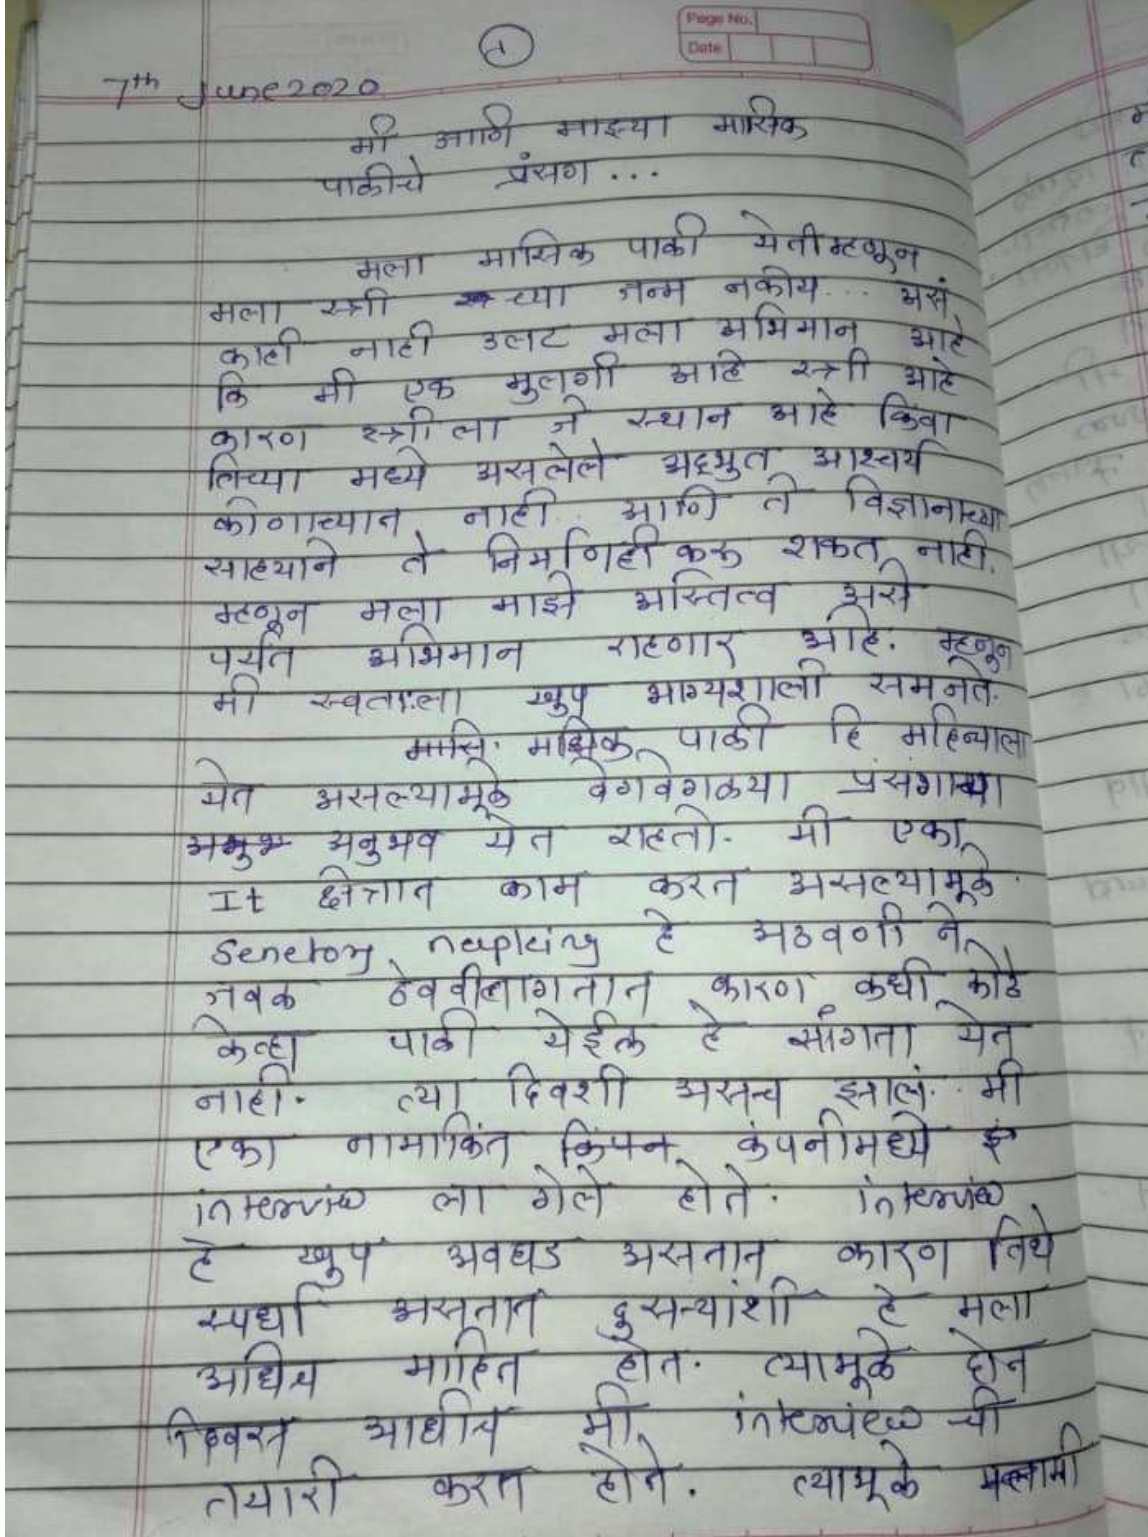 ①
Page No.
Date
7th June 2020
मी आणि माझ्या मासिक
पाळीचे प्रंसग ...
मला मासिक पाळी येतीम्हणून
मला स्त्री च्या जन्म नकोय... असं
काही नाही उलट मला अभिमान आहे
कि मी एक मुलगी आहे स्त्री आहे
कारण स्त्रीला जे स्थान आहे किंवा
तिच्या मध्ये असलेले अद्भुत आश्चर्य
कोणाच्यात नाही आणि ते विज्ञानाच्या
साहयाने ते निर्माणही करू शकत नाही.
म्हणून मला माझे अस्तित्व असे
पर्यंत अभिमान राहणार आहे. म्हणून
मी स्वताःला खुप भाग्यशाली समजते.
मासि. मासिक पाळी हि महिन्याला
येत असल्यामूळे वेगवेगळया प्रसंगाच्या
अनुभव येत राहतो. मी एका
It क्षेत्रात काम करत असल्यामूळे
हे अठवणी ने
जवळ ठेववीलागतात कारण कधी कोठे
केव्हा पाळी येईल हे सांगता येत
नाही. त्या दिवशी असच झालं. मी
एका नामाकिंत कंपनीमध्ये
interview ला गेले होते. interview
हे खुप अवघड असतात कारण तिथे
स्पर्धा असतात दुसऱ्यांशी हे मला
आधिच माहित होत. त्यामूळे दोन
दिवस आधीच मी interview ची
तयारी करत होते. त्यामूळे